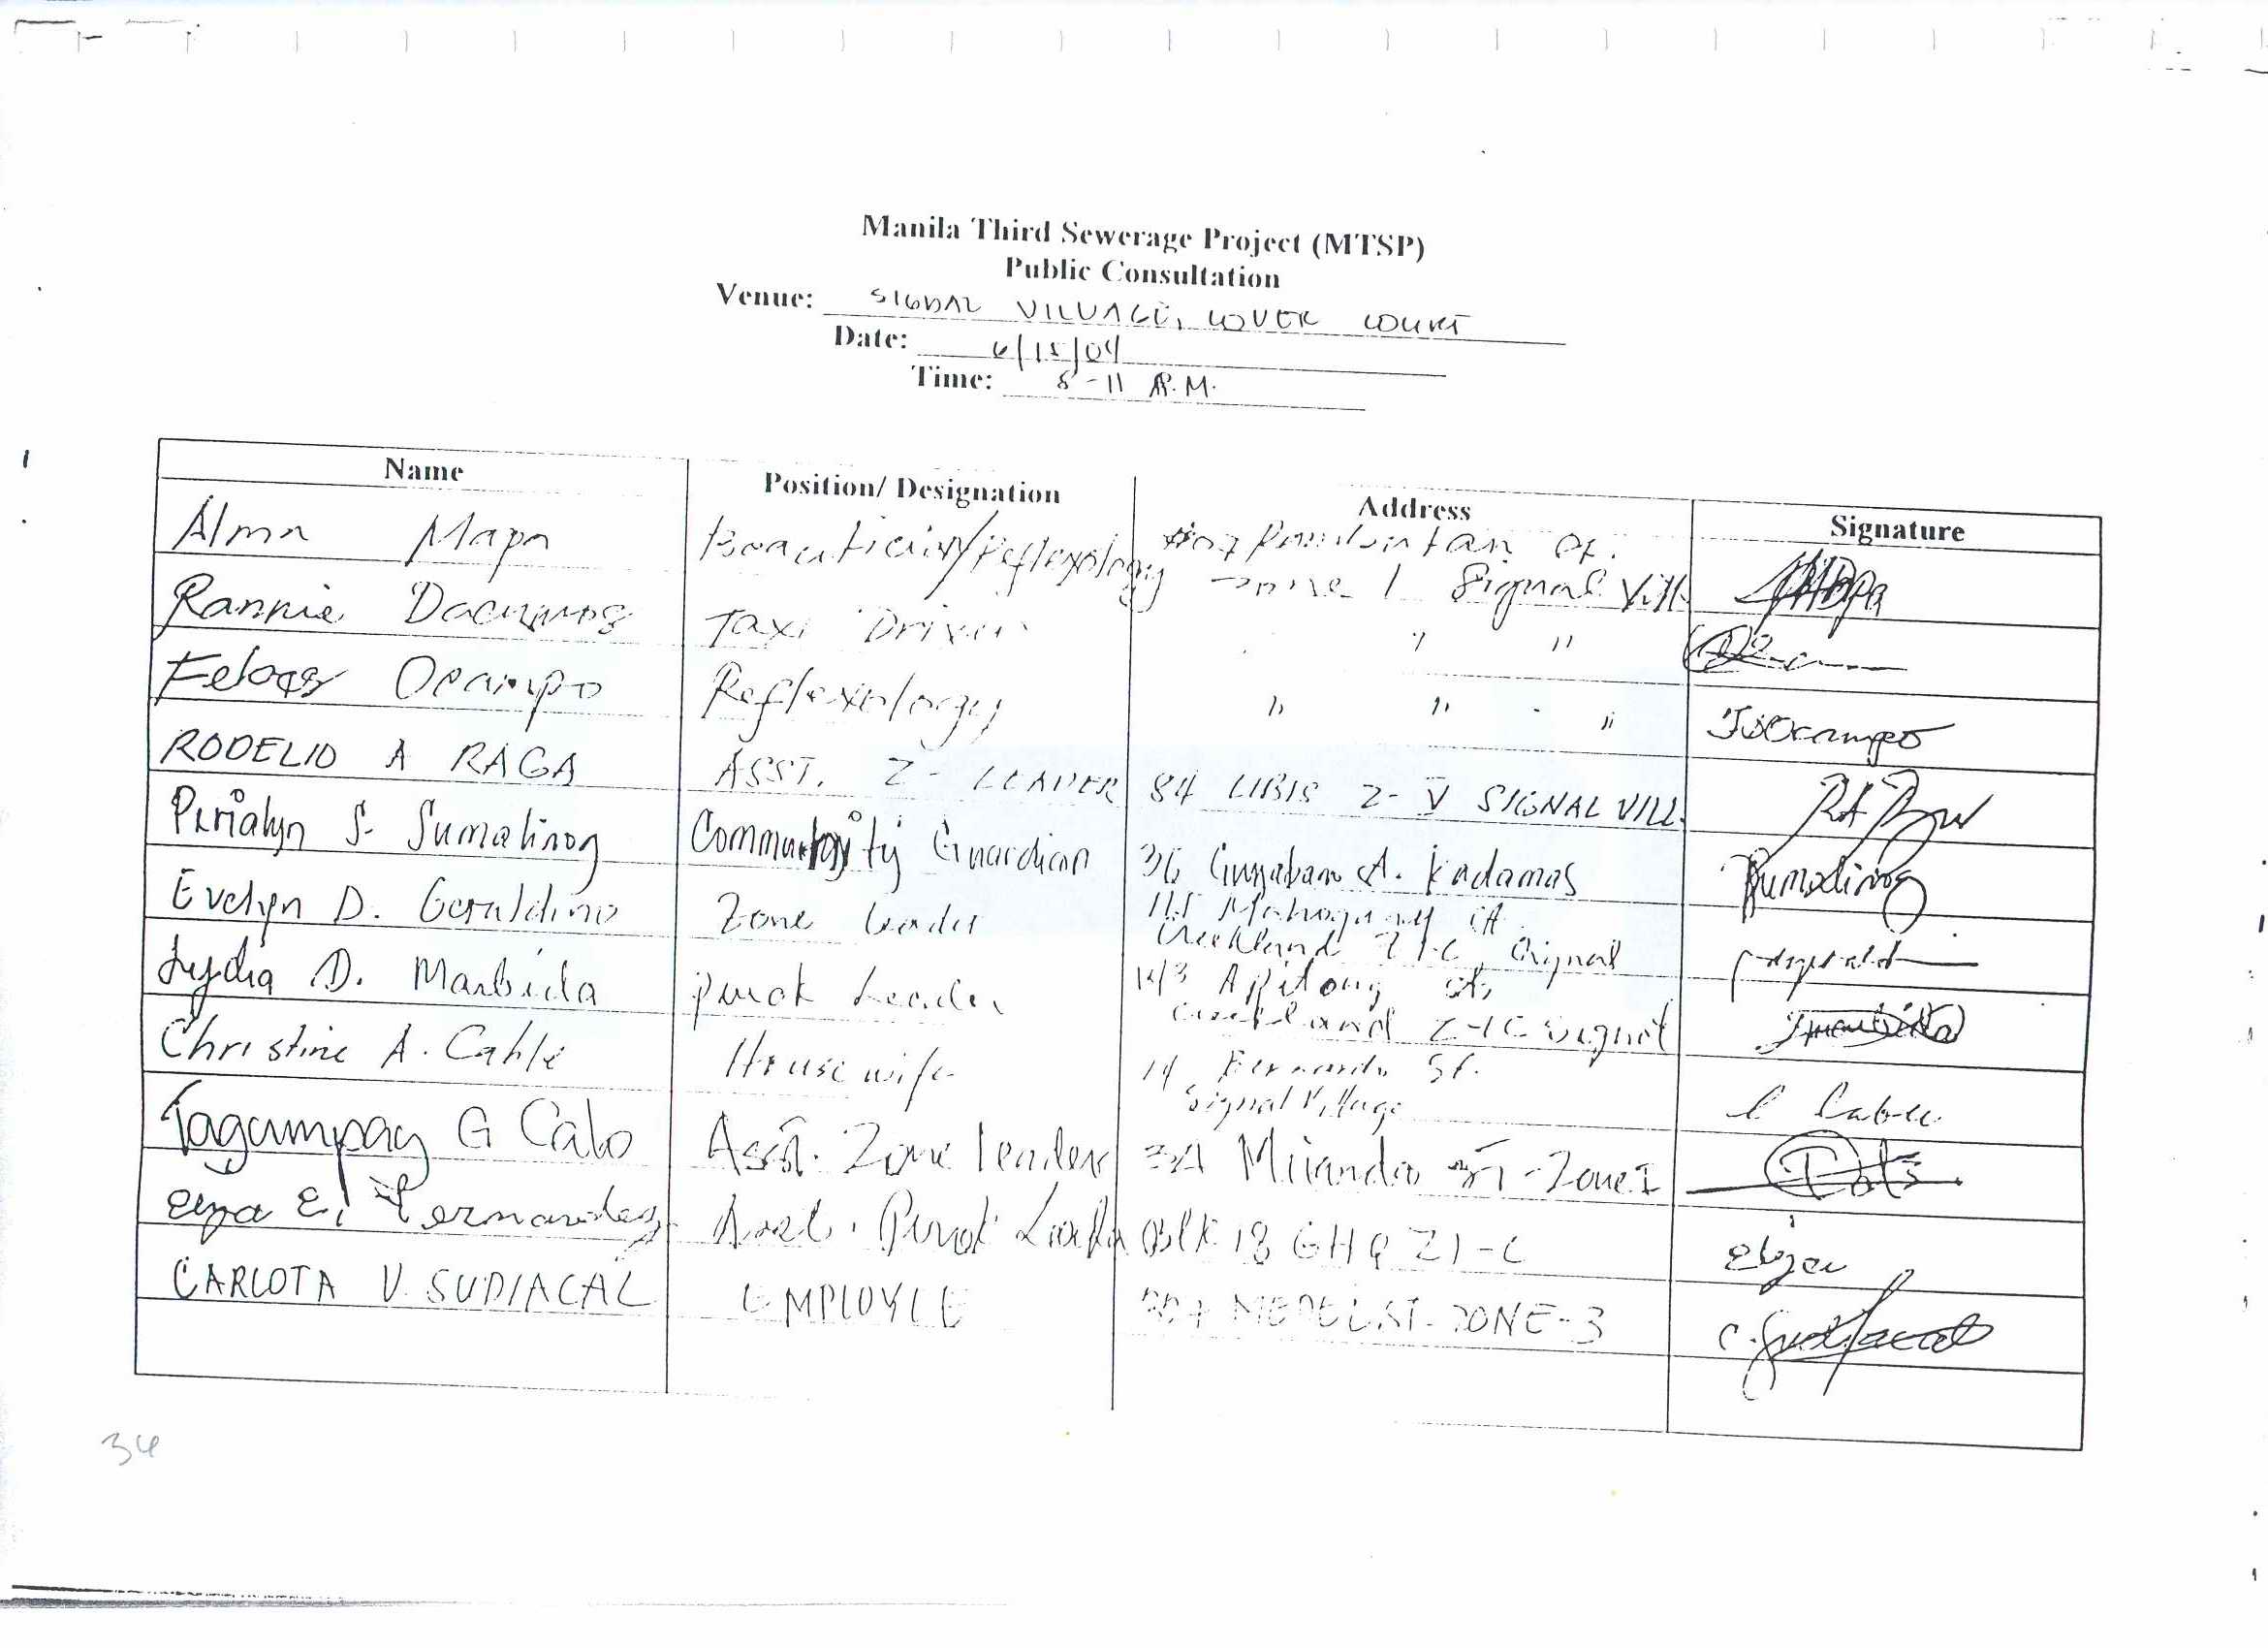 Manila Third Sewerage Project (MTSP)
Public Consultation
Venue: SIGNAL VILLAGE, COVER COURT
Date: 6/15/04
Time: 8-11 A.M.
Name Position/ Designation Address Signature
Alma Mapa Beautician/Reflexology
Zone 1 Signal Vill.
Rannie Taxi Driver " "
Ocampo Reflexology " " " Ocampo
RODELIO A RAGA ASST. Z- LEADER 84 LIBIS Z- V SIGNAL VILL.
S. Sumalinog Community Guardian 36 Guyaban st. Kadamas
Evelyn D. Geraldino Zone Leader 115 Mahogany st.
Z1-C Signal
Lydia D. Marbida Purok Leader Apitong st.
Z-1C Signal
Christine A. Cable Housewife 14 Fernando St.
Signal Village
Tagumpay G Calo Asst. Zone leader Miranda ST-Zone I
E. Fernandez Asst. Purok Leader Blk 18 GHQ Z1-C
CARLOTA V. SUDIACAL EMPLOYEE ST. ZONE-3
34